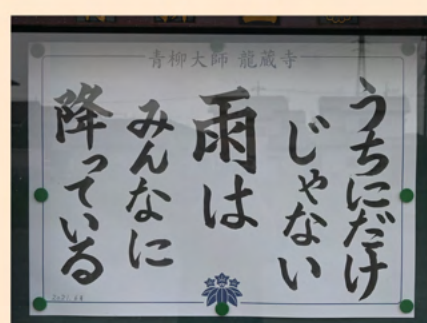 青柳大師 龍蔵寺
うちにだけ
じゃない
雨は
みんなに
降っている